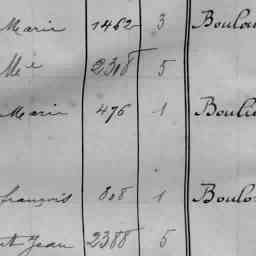 Marie 1462 3 Boulan
Me 2308 5
Marie 476 1 Boulie
françois 808 1 Boulo
et Jean 2388 5